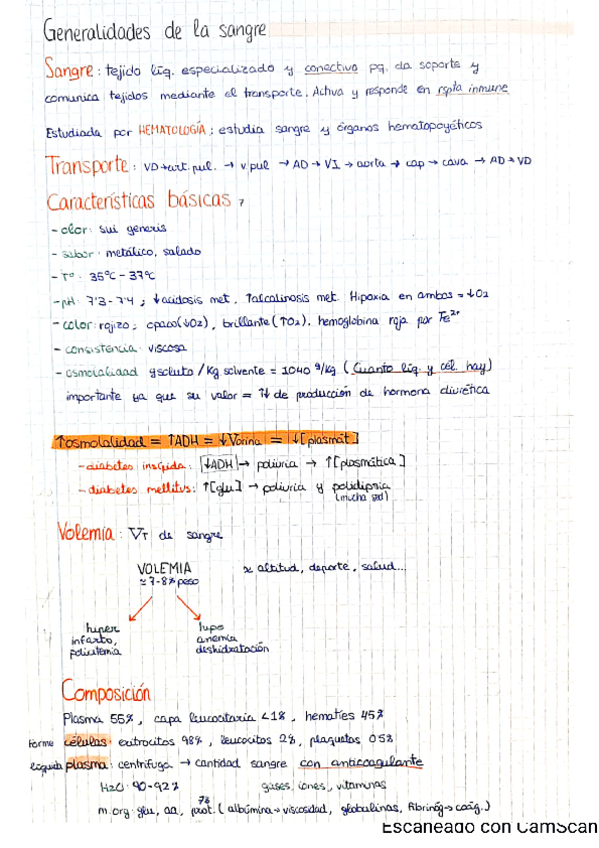 Generalidades de la sangre
Sangre: tejido líq. especializado y conectivo pq. da soporte y
comunica tejidos mediante el transporte. Activa y responde en rspta inmune
Estudiada por HEMATOLOGÍA: estudia sangre y órganos hematopoyéticos
Transporte: VD→art. pul. → v. pul → AD → VI → aorta → cap → cava → AD → VD
Características básicas
- olor: sui generis
- sabor: metálico, salado
- Tº: 35ºC - 37ºC
- pH: 7'3 - 7'4 ; ↓acidosis met. ↑alcalinosis met. Hipoxia en ambos = ↓O2
- color: rojizo; opaco(↓O2), brillante(↑O2), hemoglobina roja por Fe2+
- consistencia: viscosa
- osmolalidad gsoluto / Kg solvente = 1040 g/Kg (Cuanto líq. y cél. hay)
importante ya que su valor = ↑↓ de producción de hormona diurética
↑osmolalidad = ↑ADH = ↓Vorina = ↓[plasmát]
- diabetes insípida: ↓ADH → poliuria → ↑[plasmática]
- diabetes mellitus: ↑[glu] → poliuria y polidipsia
(mucha sed)
Volemia: VT de sangre
VOLEMIA
≃7-8% peso
altitud, deporte, salud...
hiper
infarto,
policitemia
hipo
anemia
deshidratación
Composición
Plasma 55%, capa leucocitaria <1%, hematíes 45%
forme células: eritrocitos 98%, leucocitos 2%, plaquetas 0'5%
líquida plasma: centrífuga → cantidad sangre con anticoagulante
H2O: 90-92% gases, iones, vitaminas
m.org: glu, aa, prot. 7% (albúmina→viscosidad, globulinas, fibrinóg→coag.)
Escaneado con CamScan